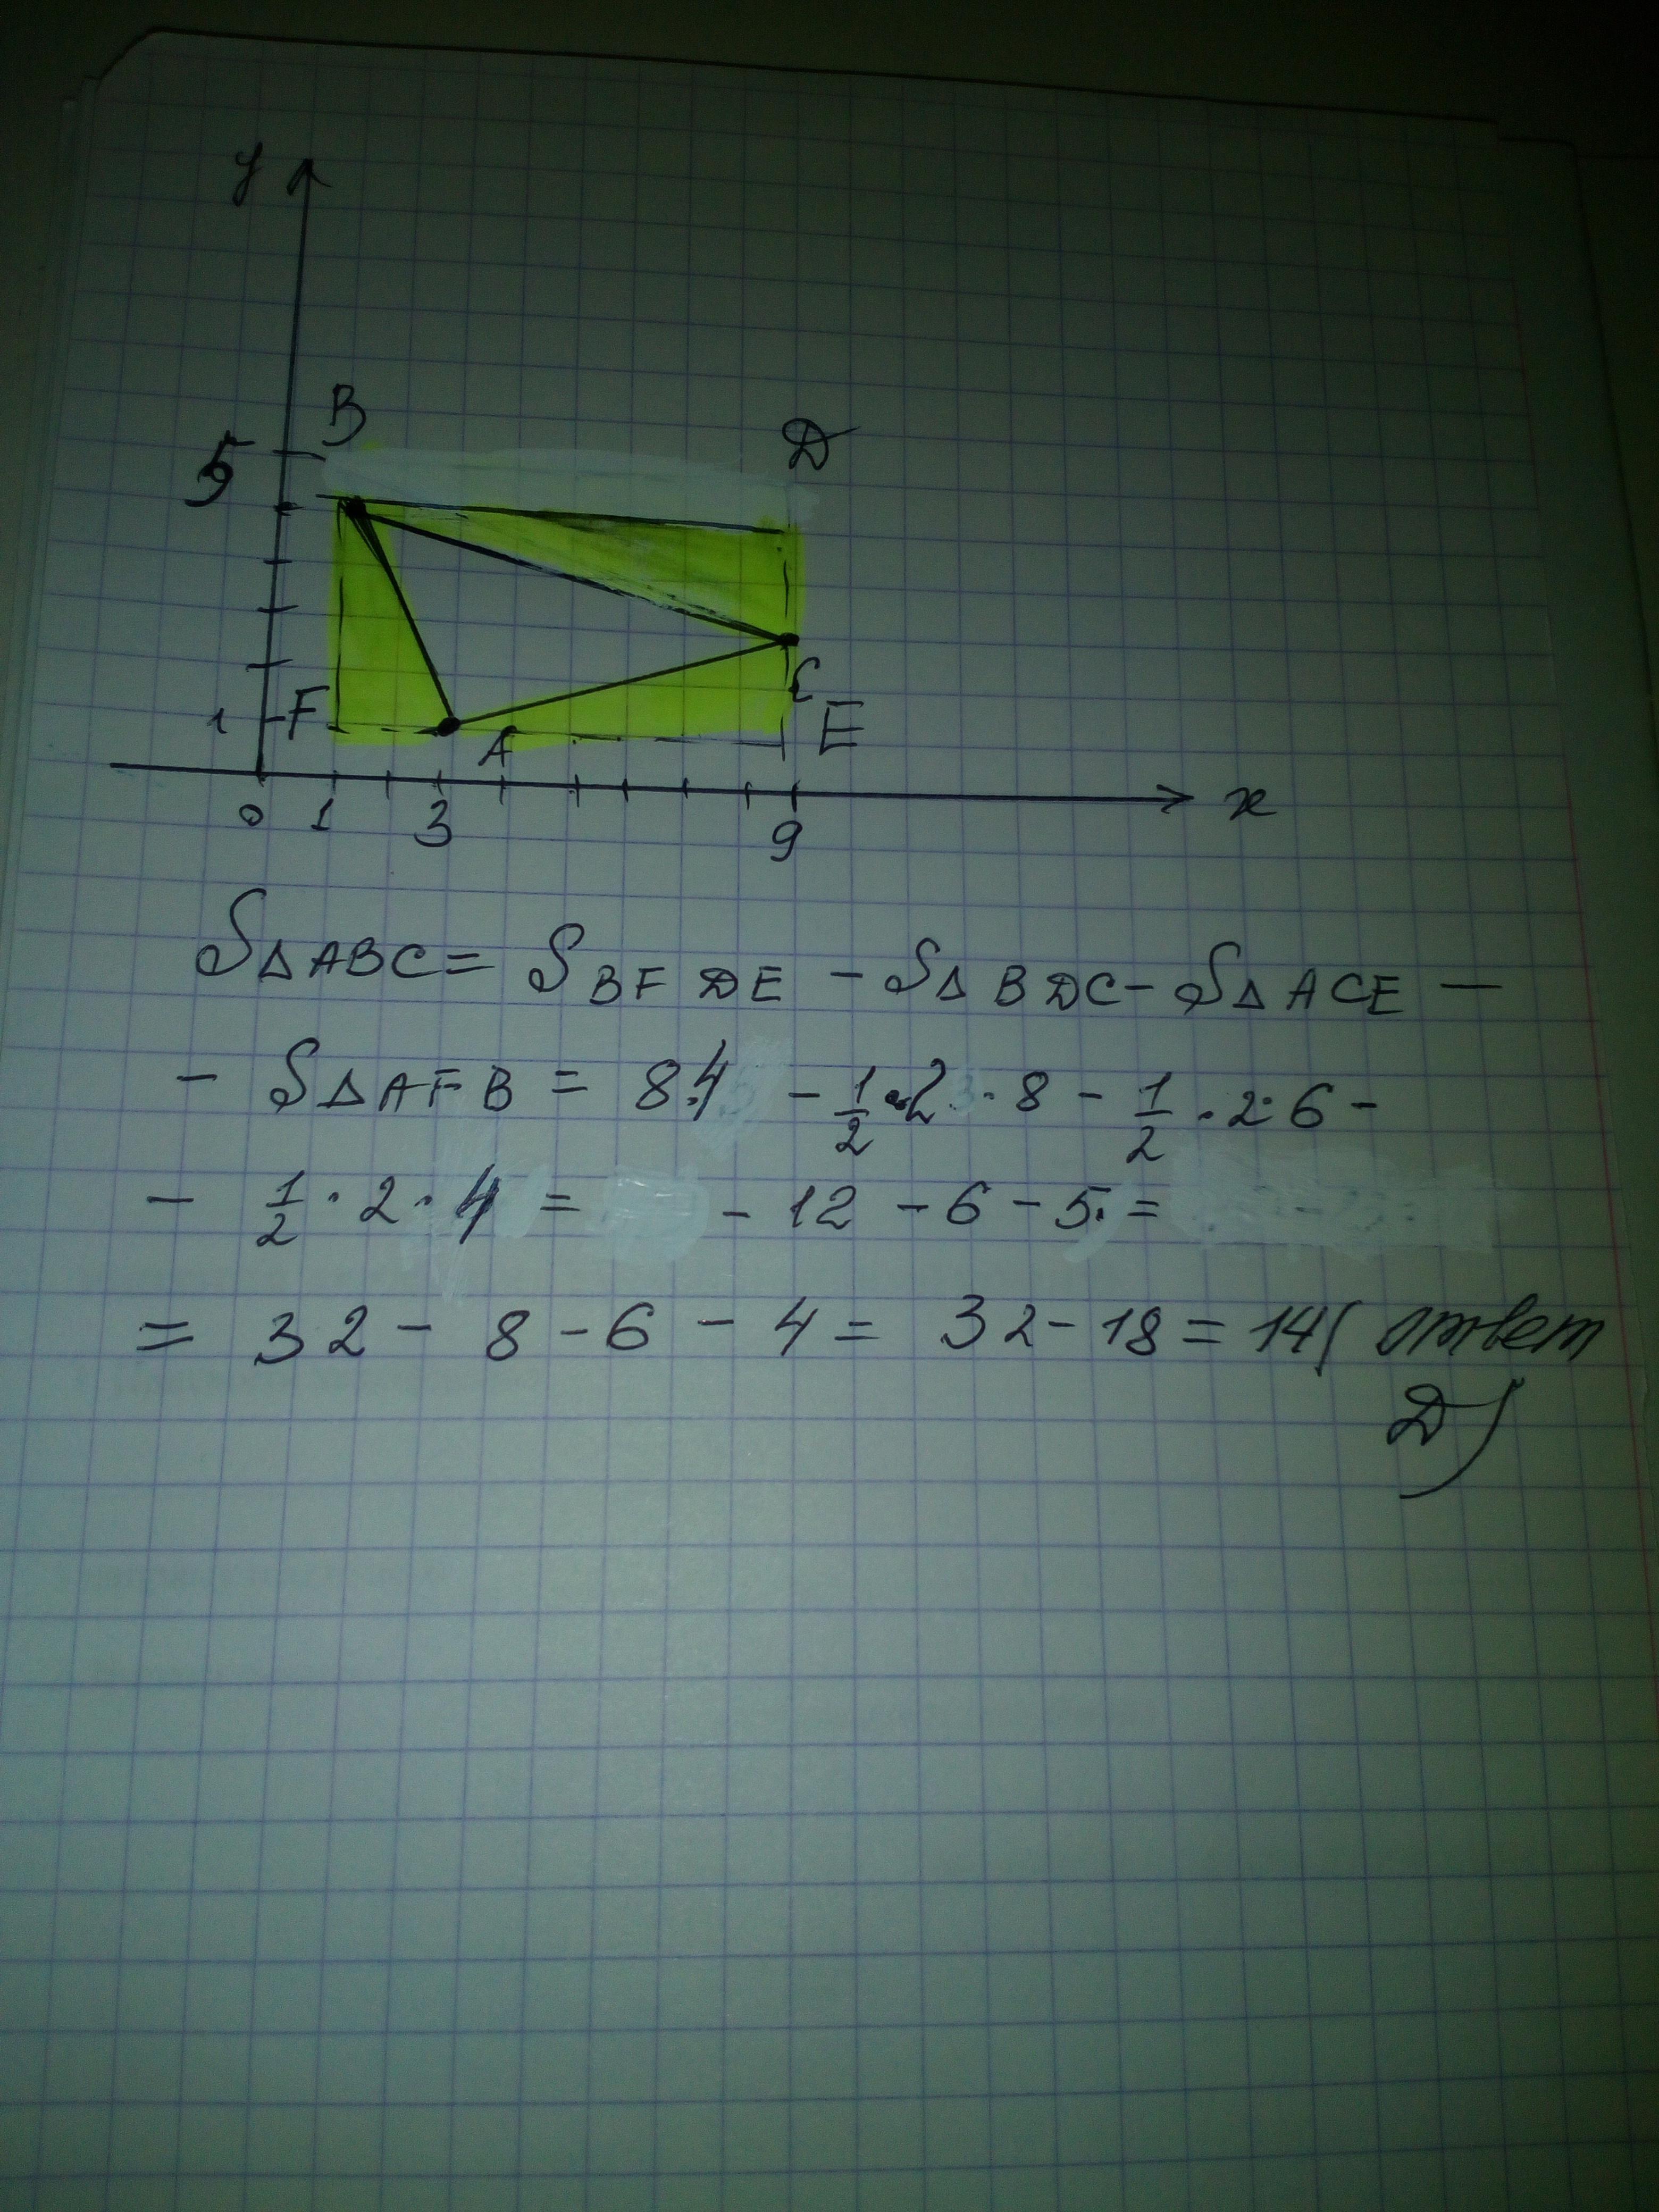 y
B
D
5
C
1 F
A E
0 1 3 9 x
S△ABC = S BFDE - S△BDC - S△ACE -
- S△AFB = 8·4 - 1/2 · 2 · 8 - 1/2 · 2 · 6 -
- 1/2 · 2 · 4 = - 12 - 6 - 5 =
= 32 - 8 - 6 - 4 = 32 - 18 = 14 ( ответ
D)